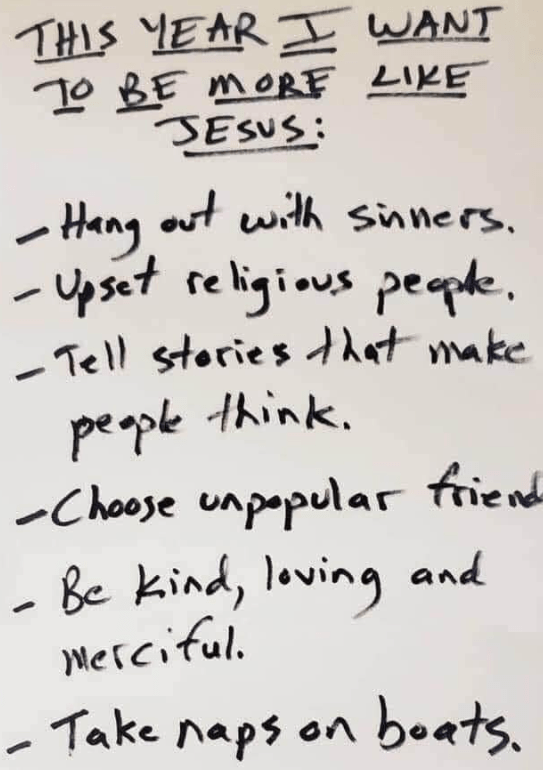 THIS YEAR I WANT
TO BE MORE LIKE
JESUS:
- Hang out with sinners.
- Upset religious people.
- Tell stories that make
people think.
- Choose unpopular friend
- Be kind, loving and
merciful.
- Take naps on boats.